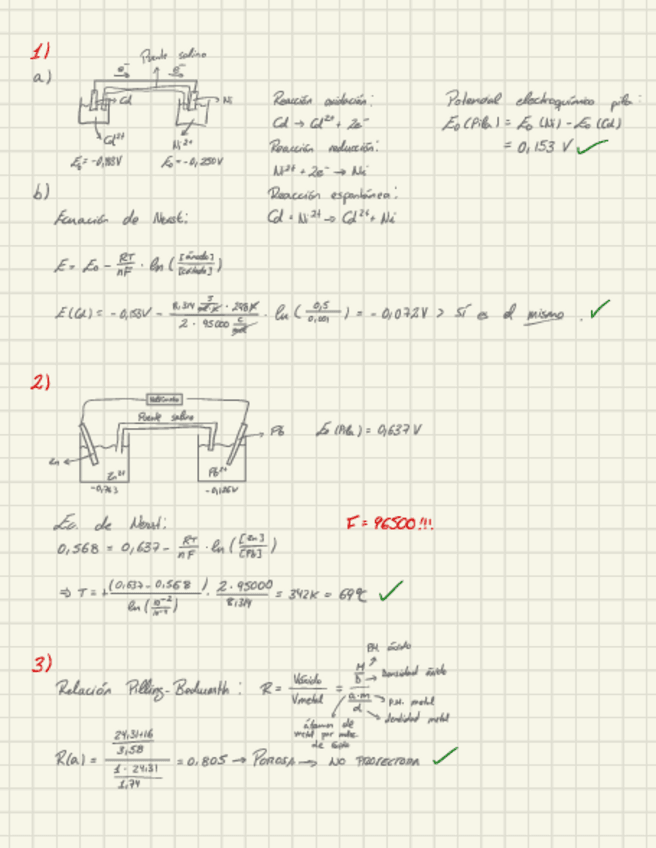 1)
a)
Puente salino
e⁻ e⁻
Cd Ni
Cd²⁺ Ni²⁺
E₀ = -0,250V
Reacción oxidación:
Cd → Cd²⁺ + 2e⁻
Reacción reducción:
Ni²⁺ + 2e⁻ → Ni
Reacción espontánea:
Cd + Ni²⁺ → Cd²⁺ + Ni
Potencial electroquímico pila:
E₀ (Pila) = E₀ (Ni) - E₀ (Cd)
= 0,153 V ✓
b)
Ecuación de Nerst:
E = E₀ - RT/nF · ln ([ánodo]/[cátodo])
· ln (0,5/0,001) = -0,072V > SÍ es el mismo. ✓
2)
Voltímetro
Puente salino
Zn Pb
Zn²⁺ Pb²⁺
-0,763 -0,126V
E₀ (Pila) = 0,637 V
Ec. de Nerst:
F = 96500!!!
0,568 = 0,637 - RT/nF · ln ([Zn]/[Pb])
⇒ T = + (0,637 - 0,568)/ln(10⁻²/10⁻¹) · 2·95000/8,314 = 342K = 69℃ ✓
3)
Relación Pilling-Bedworth: R = Vóxido/Vmetal = (M/D)/(a·m/d)
P.M. óxido
Densidad óxido
P.M. metal
densidad metal
átomos de
metal por molec.
de óxido
R(a) = ((24,31+16)/3,58)/((1·24,31)/1,74) = 0,805 → POROSA → NO PROTECTORA ✓